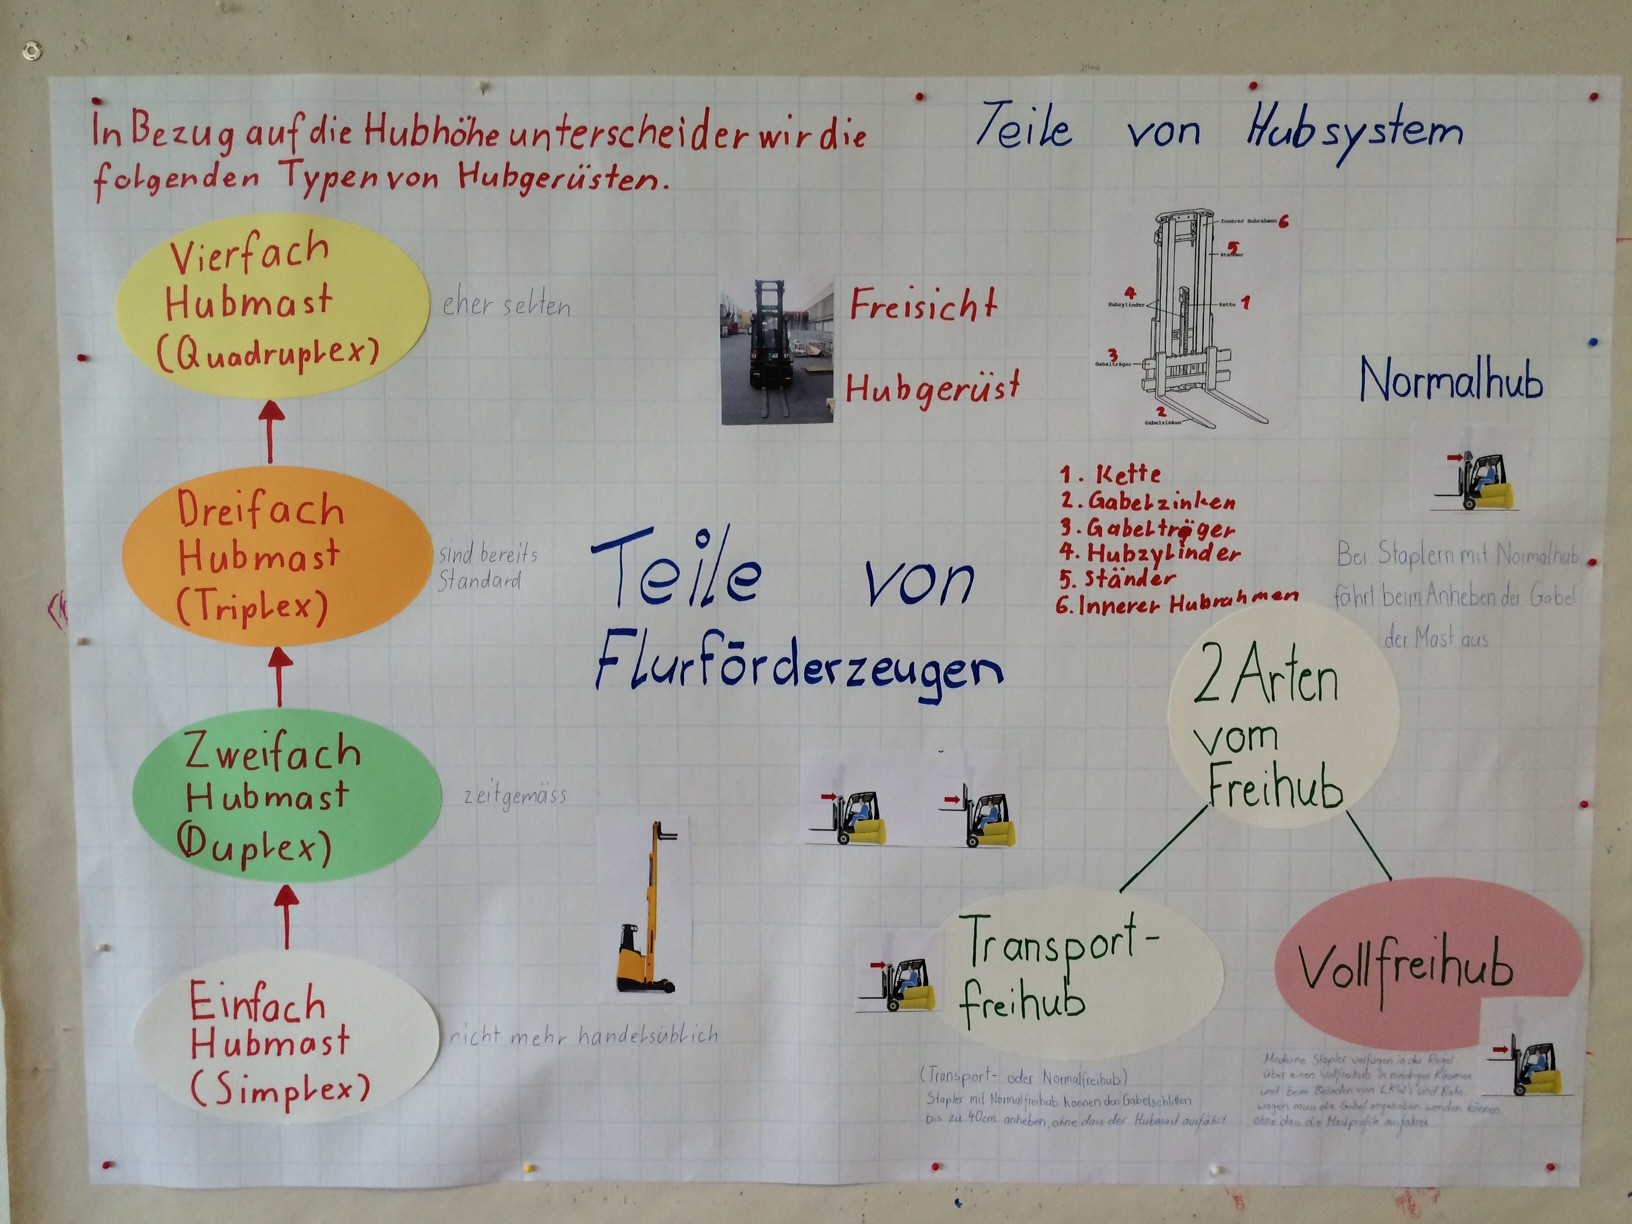 In Bezug auf die Hubhöhe unterscheider wir die
folgenden Typen von Hubgerüsten.
Vierfach
Hubmast
(Quadruplex)
eher selten
Dreifach
Hubmast
(Triplex)
sind bereits
Standard
Zweifach
Hubmast
(Duplex)
zeitgemäss
Einfach
Hubmast
(Simplex)
nicht mehr handelsüblich
Freisicht
Hubgerüst
Teile von
Flurförderzeugen
Teile von Hubsystem
Innerer Hubrahmen 6
5
Ständer
4
Hubzylinder
Kette 1
3
Gabelträger
2
Gabelzinken
1. Kette
2. Gabelzinken
3. Gabelträger
4. Hubzylinder
5. Ständer
6. Innerer Hubrahmen
Normalhub
Bei Staplern mit Normalhub
fährt beim Anheben der Gabel
der Mast aus
2 Arten
vom
Freihub
Transport-
freihub
(Transport- oder Normalfreihub)
Stapler mit Normalfreihub können den Gabelschlitten
bis zu 40cm anheben, ohne dass der Hubmast ausfährt
Vollfreihub
Moderne Stapler verfügen in der Regel
über einen Vollfreihub. In niedrigen Räumen
und beim Beladen von LKW's und Bahn-
wagen muss die Gabel angehoben werden können
ohne dass die Mastprofile ausfahren